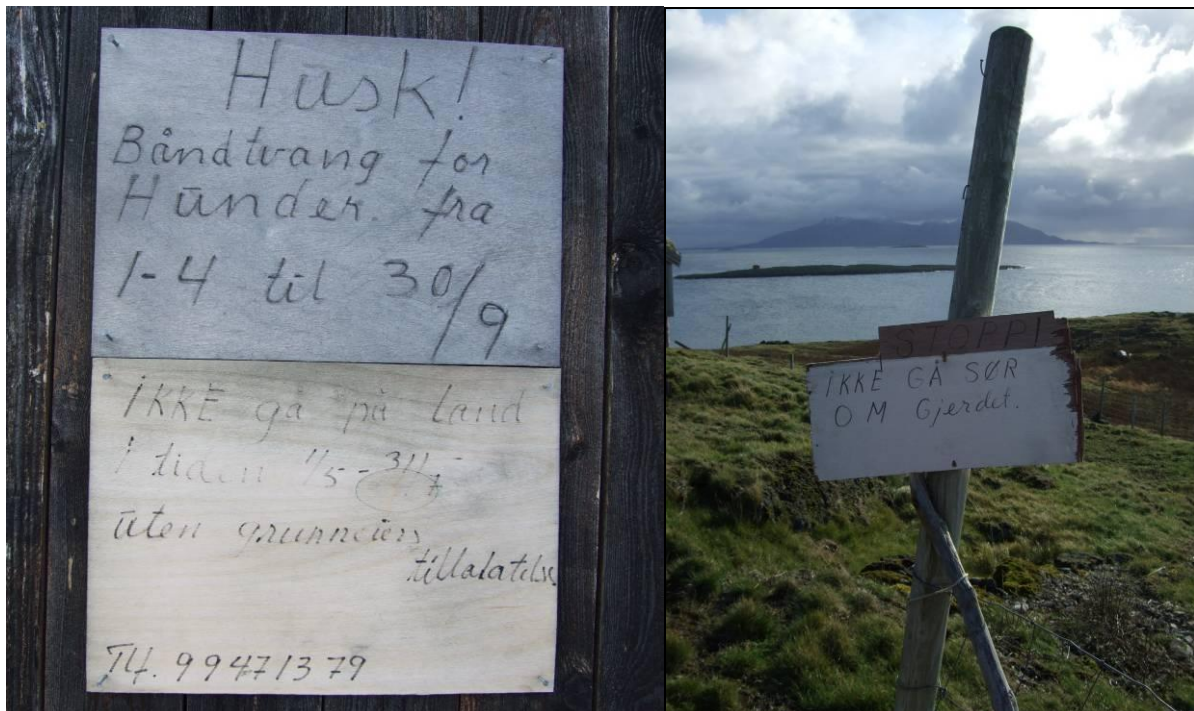 Husk!
Båndtvang for
Hunder. fra
1-4 til 30/9
IKKE gå på land
I tiden 1/5 -
uten grunneiers
tillalatelse
Tlf. 99471379
STOPP!
IKKE GÅ SØR
OM Gjerdet.